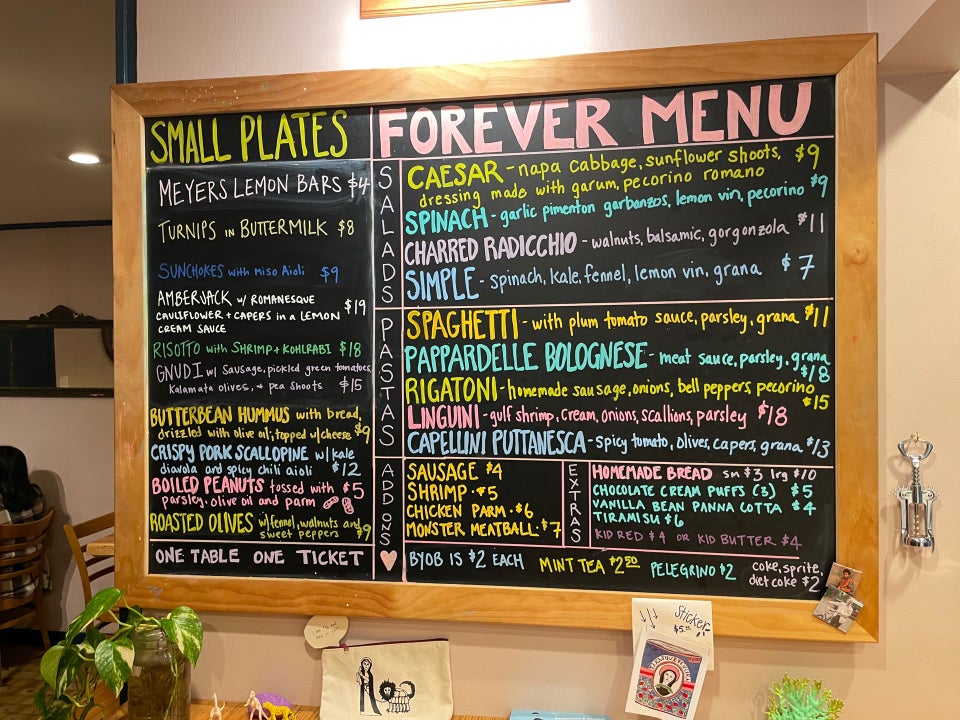 SMALL PLATES
MEYERS LEMON BARS $4
TURNIPS IN BUTTERMILK $8
SUNCHOKES with Miso Aioli $9
AMBERJACK w/ ROMANESQUE
CAULIFLOWER + CAPERS in a LEMON
CREAM SAUCE $19
RISOTTO with SHRIMP + KOHLRABI $18
GNUDI w/ Sausage, pickled green tomatoes,
Kalamata olives, + pea shoots $15
BUTTERBEAN HUMMUS with bread,
drizzled with olive oil; topped w/cheese $9
CRISPY PORK SCALLOPINE w/ kale
diavola and spicy chili aioli $12
BOILED PEANUTS tossed with $5
parsley, olive oil and parm
ROASTED OLIVES w/fennel, walnuts and
sweet peppers $9
ONE TABLE ONE TICKET
FOREVER MENU
SALADS
CAESAR - napa cabbage, sunflower shoots, $9
dressing made with garum, pecorino romano
SPINACH - garlic pimenton garbanzos, lemon vin, pecorino $9
CHARRED RADICCHIO - walnuts, balsamic, gorgonzola $11
SIMPLE - spinach, kale, fennel, lemon vin, grana $7
PASTAS
SPAGHETTI - with plum tomato sauce, parsley, grana $11
PAPPARDELLE BOLOGNESE - meat sauce, parsley, grana
$18
RIGATONI - homemade sausage, onions, bell peppers, pecorino
$15
LINGUINI - gulf shrimp, cream, onions, scallions, parsley $18
CAPELLINI PUTTANESCA - spicy tomato, olives, capers, grana $13
ADD ONS
SAUSAGE $4
SHRIMP - $5
CHICKEN PARM - $6
MONSTER MEATBALL - $7
EXTRAS
HOMEMADE BREAD sm $3 lrg $10
CHOCOLATE CREAM PUFFS (3) $5
VANILLA BEAN PANNA COTTA $4
TIRAMISU $6
KID RED $4 OR KID BUTTER $4
BYOB IS $2 EACH
MINT TEA $2.50
PELEGRINO $2
coke, sprite,
diet coke $2
Sticker